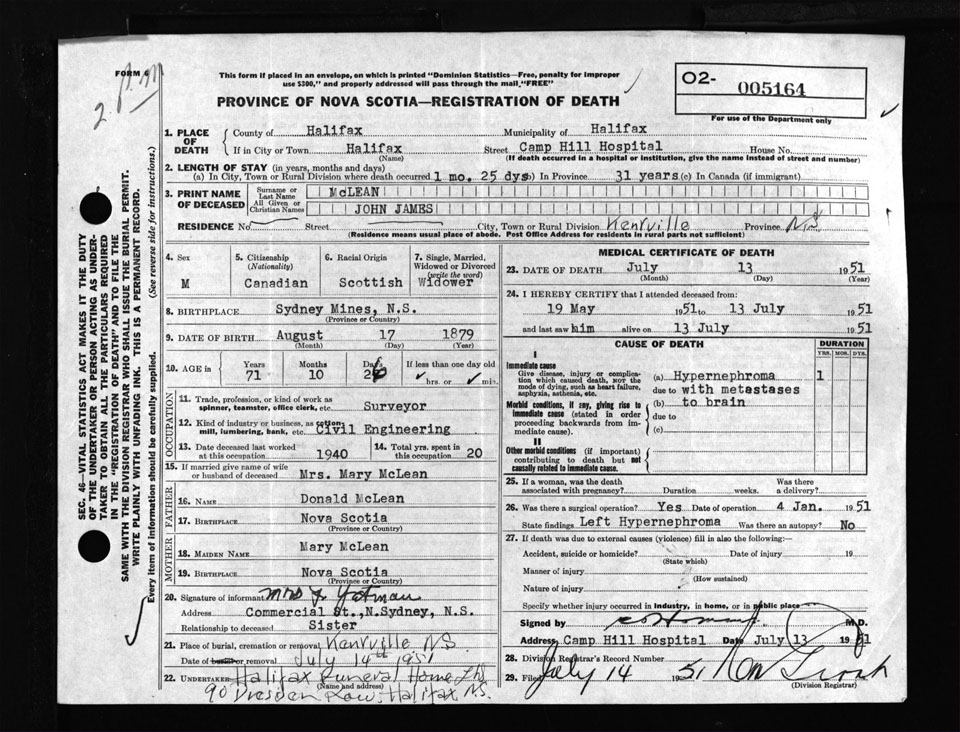 FORM 6
2 P.M
This form if placed in an envelope, on which is printed "Dominion Statistics—Free, penalty for improper
use $300," and properly addressed will pass through the mail "FREE"
PROVINCE OF NOVA SCOTIA—REGISTRATION OF DEATH
O2- 005164
For use of the Department only
1. PLACE OF DEATH County of Halifax Municipality of Halifax
If in City or Town Halifax Street Camp Hill Hospital House No.
(Name) (If death occurred in a hospital or institution, give the name instead of street and number)
2. LENGTH OF STAY (in years, months and days)
(a) In City, Town or Rural Division where death occurred 1 mo. 25 dys (b) In Province 31 years (c) In Canada (if immigrant)
3. PRINT NAME OF DECEASED Surname or Last Name McLEAN
All Given or Christian Names JOHN JAMES
RESIDENCE No. Street City, Town or Rural Division Kentville Province NS
(Residence means usual place of abode. Post Office Address for residents in rural parts not sufficient)
4. Sex M
5. Citizenship (Nationality) Canadian
6. Racial Origin Scottish
7. Single, Married, Widowed or Divorced (write the word) Widower
8. BIRTHPLACE Sydney Mines, N.S.
(Province or Country)
9. DATE OF BIRTH August 17 1879
(Month) (Day) (Year)
10. AGE in Years Months Days If less than one day old
71 10 26 hrs. or min.
OCCUPATION
11. Trade, profession, or kind of work as
spinner, teamster, office clerk, etc. Surveyor
12. Kind of industry or business, as cotton-
mill, lumbering, bank, etc. Civil Engineering
13. Date deceased last worked at this occupation 1940
14. Total yrs. spent in this occupation 20
15. If married give name of wife or husband of deceased Mrs. Mary McLean
FATHER
16. NAME Donald McLean
17. BIRTHPLACE Nova Scotia
(Province or Country)
MOTHER
18. MAIDEN NAME Mary McLean
19. BIRTHPLACE Nova Scotia
(Province or Country)
20. Signature of informant Mrs J.
Address Commercial St., N.Sydney, N.S.
Relationship to deceased Sister
21. Place of burial, cremation or removal Kentville N.S.
Date of burial or removal July 14th 1951
22. UNDERTAKER Halifax Funeral Home Ltd
(Name and address)
90 Dresden Row, Halifax N.S.
MEDICAL CERTIFICATE OF DEATH
23. DATE OF DEATH July 13 1951
(Month) (Day) (Year)
24. I HEREBY CERTIFY that I attended deceased from:
19 May 1951 to 13 July 1951
and last saw him alive on 13 July 1951
CAUSE OF DEATH DURATION
YRS. MOS. DYS.
I
Immediate cause
Give disease, injury or complication which caused death, NOT the mode of dying, such as heart failure, asphyxia, asthenia, etc.
(a) Hypernephroma 1
due to with metastases
Morbid conditions, if any, giving rise to immediate cause (stated in order proceeding backwards from immediate cause).
(b) to brain
due to
(c)
II
Other morbid conditions (if important) contributing to death but not causally related to immediate cause.
25. If a woman, was the death associated with pregnancy? Duration weeks. Was there a delivery?
26. Was there a surgical operation? Yes Date of operation 4 Jan. 1951
State findings Left Hypernephroma Was there an autopsy? No
27. If death was due to external causes (violence) fill in also the following:—
Accident, suicide or homicide? Date of injury 19
(State which)
Manner of injury
(How sustained)
Nature of injury
Specify whether injury occurred in industry, in home, or in public place
Signed by M.D.
Address Camp Hill Hospital Date July 13 1951
28. Division Registrar's Record Number
29. Filed July 14 1951
(Division Registrar)
SEC. 46—VITAL STATISTICS ACT MAKES IT THE DUTY
OF THE UNDERTAKER OR PERSON ACTING AS UNDER-
TAKER TO OBTAIN ALL THE PARTICULARS REQUIRED
IN THE "REGISTRATION OF DEATH" AND TO FILE THE
SAME WITH THE DIVISION REGISTRAR WHO SHALL ISSUE THE BURIAL PERMIT.
WRITE PLAINLY WITH UNFADING INK. THIS IS A PERMANENT RECORD.
Every item of information should be carefully supplied. (See reverse side for instructions.)